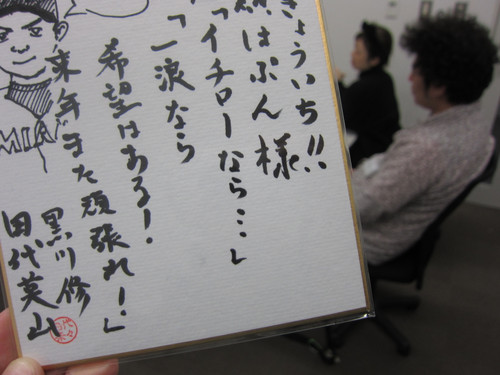 きょういち!!
はぷん様
「イチローなら…」
「一浪なら
希望はある!
来年また頑張れ!」
黒川修
田代英山
MIA